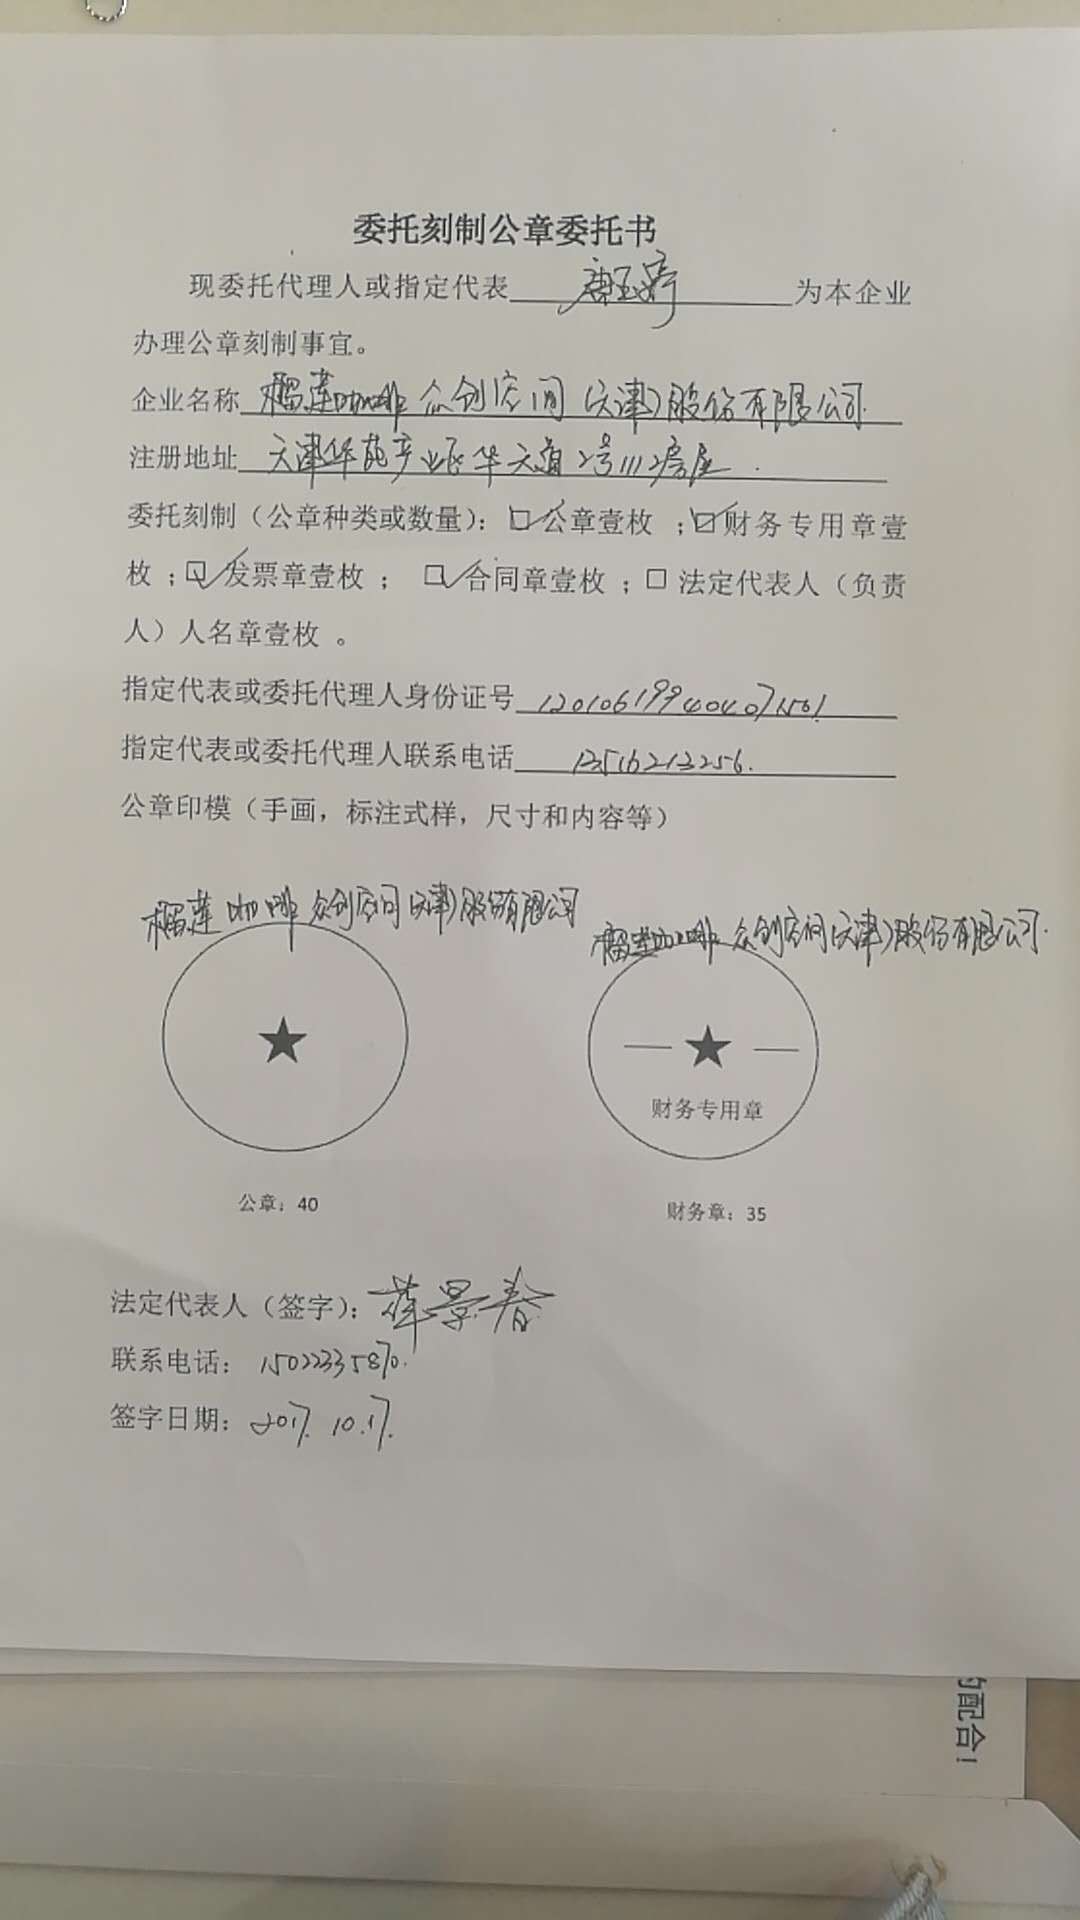 委托刻制公章委托书
现委托代理人或指定代表 唐玉婷 为本企业
办理公章刻制事宜。
企业名称 榴莲咖啡众创空间(天津)股份有限公司
注册地址 天津华苑产业区华天道2号1112房屋.
委托刻制（公章种类或数量）：☑公章壹枚 ；☑财务专用章壹
枚；☑发票章壹枚 ； ☑合同章壹枚 ；□ 法定代表人（负责
人）人名章壹枚 。
指定代表或委托代理人身份证号 120106199404071501
指定代表或委托代理人联系电话 13516213256.
公章印模（手画，标注式样，尺寸和内容等）
榴莲咖啡众创空间(天津)股份有限公司
榴莲咖啡众创空间(天津)股份有限公司.
财务专用章
公章：40
财务章：35
法定代表人（签字）：薛景春
联系电话：15022335870.
签字日期：2017.10.17.
的配合！